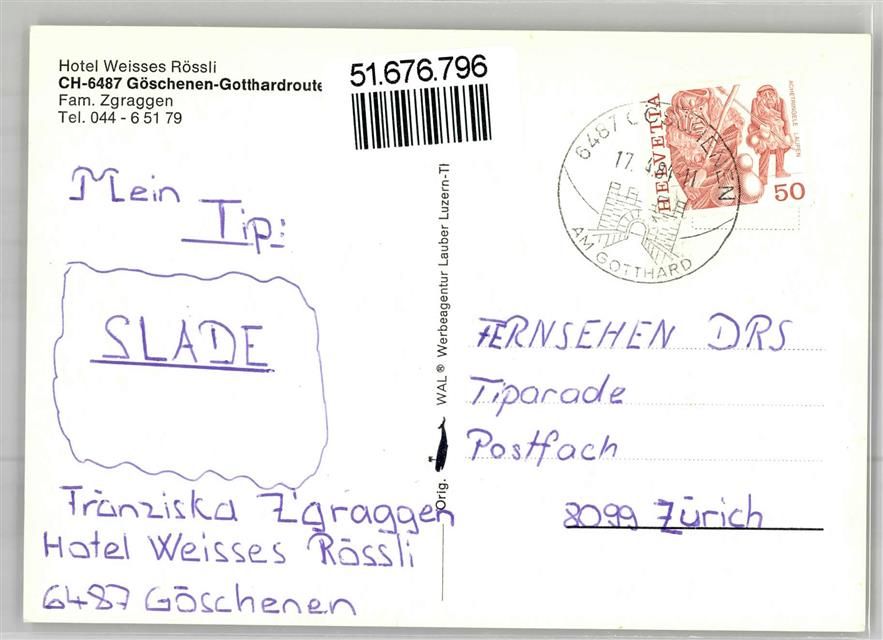 Hotel Weisses Rössli
CH-6487 Göschenen-Gotthardroute
Fam. Zgraggen
Tel. 044 - 6 51 79
51.676.796
Mein
Tip:
SLADE
Franziska Zgraggen
Hotel Weisses Rössli
6487 Göschenen
Orig. WAL® Werbeagentur Lauber Luzern-TI
6487 GÖSCHENEN
17.
AM GOTTHARD
HELVETIA
ACHETRINGELE LAUPEN
50
FERNSEHEN DRS
Tiparade
Postfach
8099 Zürich